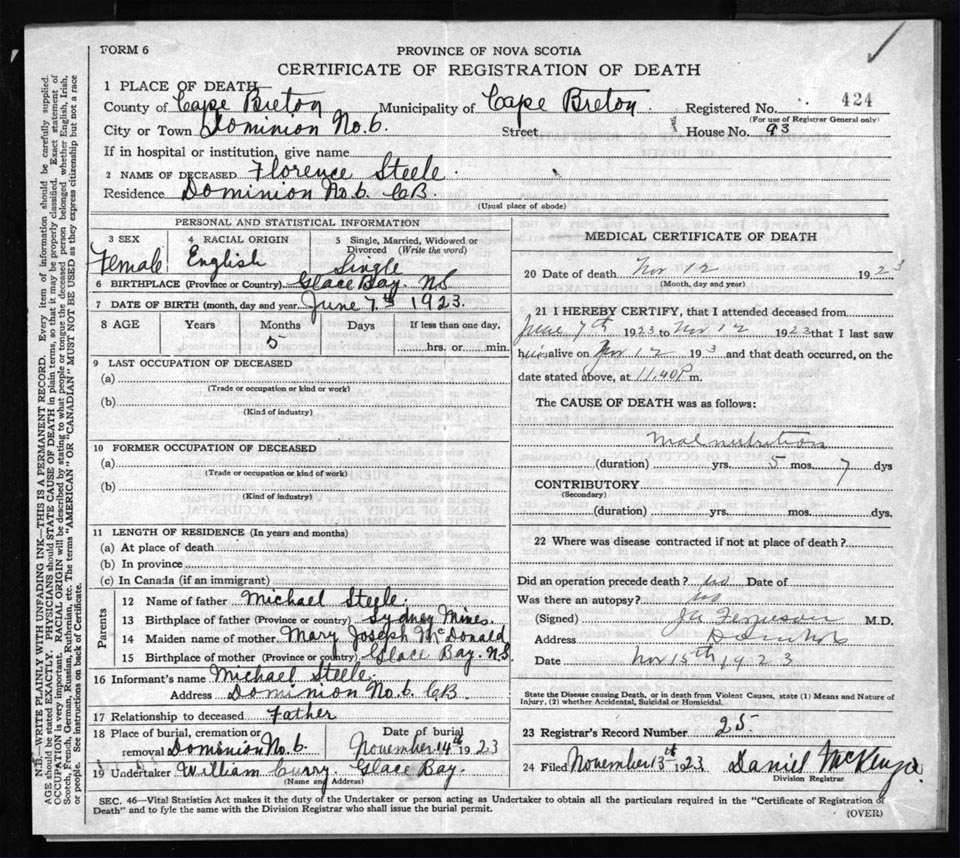 FORM 6
PROVINCE OF NOVA SCOTIA
CERTIFICATE OF REGISTRATION OF DEATH
1 PLACE OF DEATH—
County of Cape Breton Municipality of Cape Breton. Registered No. 424
(For use of Registrar General only)
City or Town Dominion No. 6. Street House No. 93
If in hospital or institution, give name
2 NAME OF DECEASED Florence Steele.
Residence Dominion No. 6. CB.
(Usual place of abode)
PERSONAL AND STATISTICAL INFORMATION
3 SEX Female
4 RACIAL ORIGIN English
5 Single, Married, Widowed or Divorced (Write the word) Single
6 BIRTHPLACE (Province or Country) Glace Bay. N.S.
7 DATE OF BIRTH (month, day and year) June 7th 1923.
8 AGE Years Months Days If less than one day,
5 hrs. or min.
9 LAST OCCUPATION OF DECEASED
(a)
(Trade or occupation or kind or work)
(b)
(Kind of industry)
10 FORMER OCCUPATION OF DECEASED
(a)
(Trade or occupation or kind of work)
(b)
(Kind of industry)
11 LENGTH OF RESIDENCE (In years and months)
(a) At place of death
(b) In province
(c) In Canada (if an immigrant)
Parents
12 Name of father Michael Steele.
13 Birthplace of father (Province or country) Sydney Mines.
14 Maiden name of mother Mary Joseph McDonald
15 Birthplace of mother (Province or country) Glace Bay. N.S.
16 Informant's name Michael Steele.
Address Dominion No. 6. CB.
17 Relationship to deceased Father
18 Place of burial, cremation or Date of burial
removal Dominion No. 6. November 14th 1923
19 Undertaker William Curry. Glace Bay.
(Name and Address)
MEDICAL CERTIFICATE OF DEATH
20 Date of death Nov 12 1923
(Month, day and year)
21 I HEREBY CERTIFY, that I attended deceased from
June 7th 1923 to Nov 12 1923 that I last saw
alive on Nov 12 193 and that death occurred, on the
date stated above, at 11.40 P m.
The CAUSE OF DEATH was as follows:
Malnutrition
(duration) yrs. 5 mos. 7 dys
CONTRIBUTORY
(Secondary)
(duration) yrs. mos. dys.
22 Where was disease contracted if not at place of death?
Did an operation precede death? No Date of
Was there an autopsy? No
(Signed) Ferguson M.D.
Address
Date Nov 15th 1923
State the Disease causing Death, or in death from Violent Causes, state (1) Means and Nature of
Injury, (2) whether Accidental, Suicidal or Homicidal.
23 Registrar's Record Number 25.
24 Filed November 13th 1923 Daniel McKenzie.
Division Registrar
SEC. 46—Vital Statistics Act makes it the duty of the Undertaker or person acting as Undertaker to obtain all the particulars required in the "Certificate of Registration of
Death" and to fyle the same with the Division Registrar who shall issue the burial permit.
(OVER)
N.B.—WRITE PLAINLY WITH UNFADING INK—THIS IS A PERMANENT RECORD. Every item of information should be carefully supplied.
AGE should be stated EXACTLY. PHYSICIANS should STATE CAUSE OF DEATH in plain terms, so that it may be properly classified. Exact statement of
OCCUPATION is very important. RACIAL ORIGIN will be described by stating to what people or tongue the deceased person belonged whether English, Irish,
Scotch, French, German, Russian, Ruthenian, etc. The terms "AMERICAN" OR "CANADIAN" MUST NOT BE USED as they express citizenship but not a race
or people. See instructions on back of Certificate.